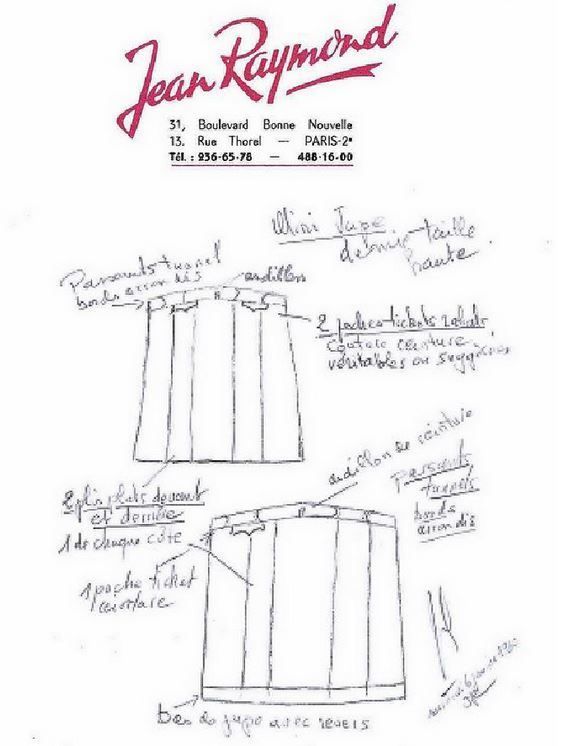 Jean Raymond
31, Boulevard Bonne Nouvelle
13, Rue Thorel — PARIS-2e
Tél. : 236-65-78 — 488-16-00
Mini Jupe
demie-taille
haute
Passants tunnel
bords arrondis
ardillon
2 poches-tickets rabat
ceinture
véritables ou suggérées
ardillon de ceinture
Passants
tunnels
bords
arrondis
2 plis plats devant
et derrière
1 de chaque côté
1 poche ticket
ceinture
bas de jupe avec revers